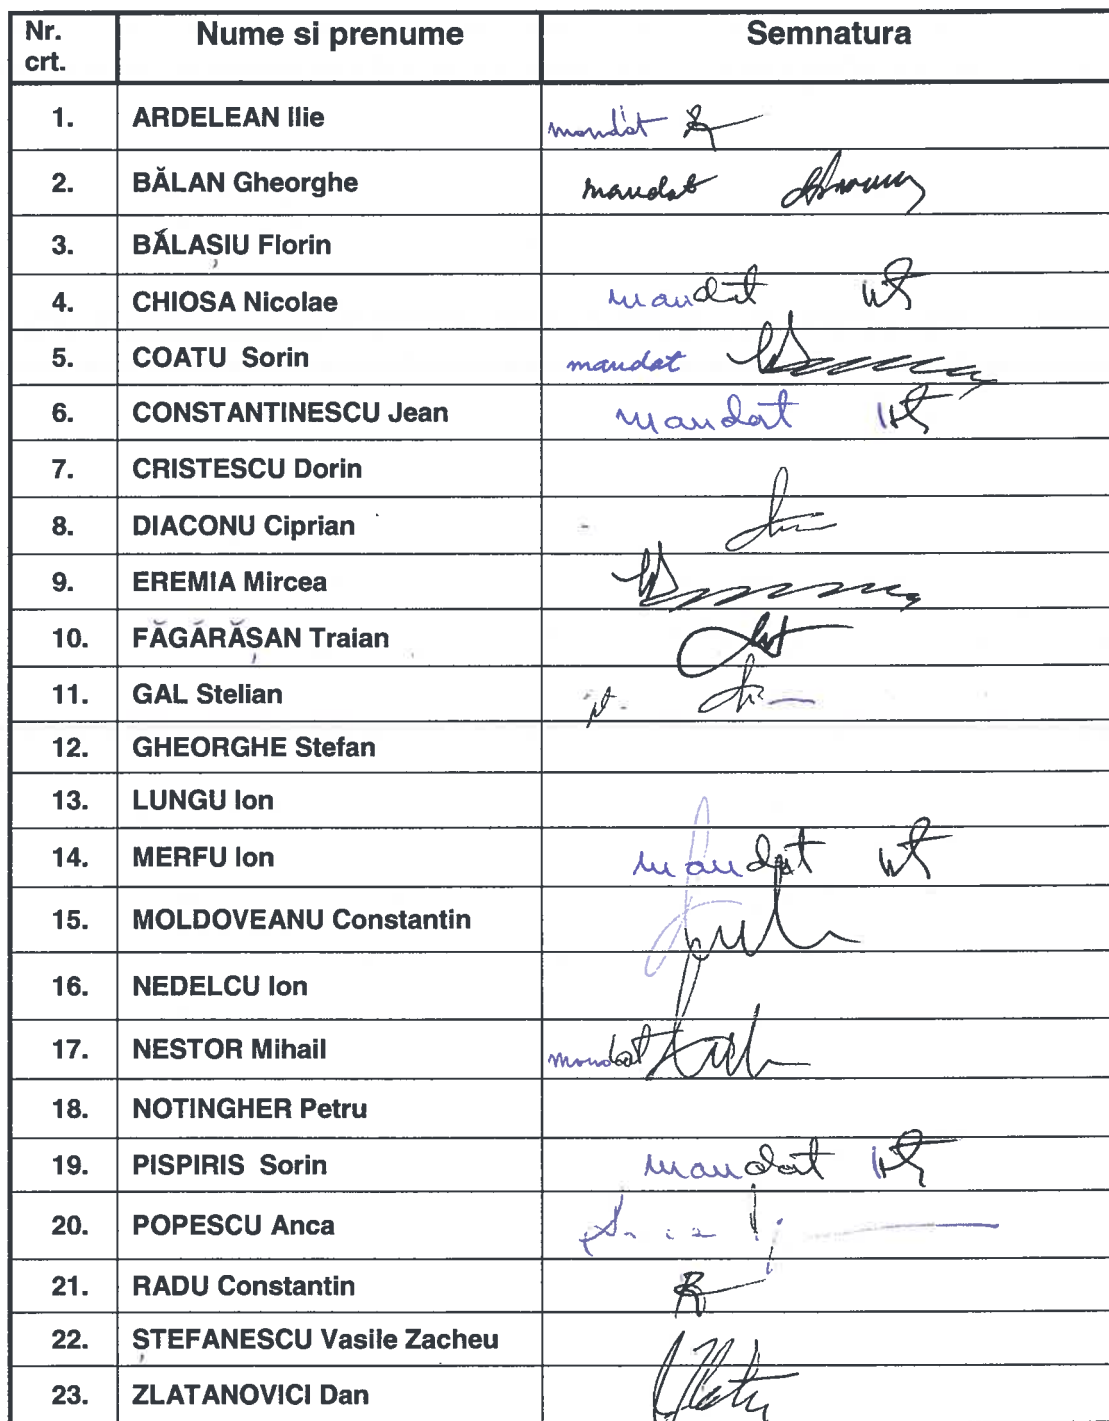 Nr. crt. Nume si prenume Semnatura
1. ARDELEAN Ilie mandat
2. BĂLAN Gheorghe mandat
3. BĂLAȘIU Florin
4. CHIOSA Nicolae mandat
5. COATU Sorin mandat
6. CONSTANTINESCU Jean mandat
7. CRISTESCU Dorin
8. DIACONU Ciprian
9. EREMIA Mircea
10. FĂGĂRĂȘAN Traian
11. GAL Stelian
12. GHEORGHE Stefan
13. LUNGU Ion
14. MERFU Ion mandat
15. MOLDOVEANU Constantin
16. NEDELCU Ion
17. NESTOR Mihail mandat
18. NOTINGHER Petru
19. PISPIRIS Sorin mandat
20. POPESCU Anca
21. RADU Constantin
22. STEFANESCU Vasile Zacheu
23. ZLATANOVICI Dan